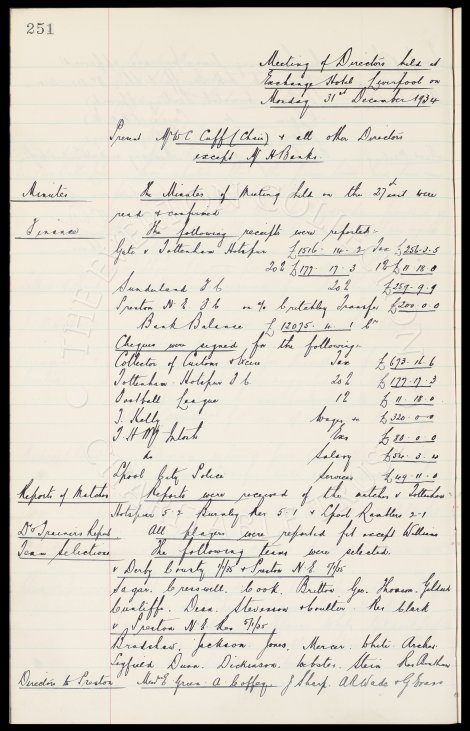 251
Meeting of Directors held at
Exchange Hotel Liverpool on
Monday 31st December 1934
Present Mr W C Cuff (Chair) & all other Directors
except Mr H Banks
Minutes The Minutes of Meeting held on the 27 inst were
read & confirmed
Finance The following receipts were reported:-
Gate v Tottenham Hotspur £1516. 14. 2 Tax £256.3.5
20% £177. 17. 3 1% £11. 18. 0
Sunderland F C 20% £259. 9. 9
Preston N E F C on a/c Critchley Transfer £200. 0. 0
Bank Balance £12075. 4. 1 Cr
Cheques were signed for the following:-
Collector of Customs & Excise Tax £673. 16. 6
Tottenham Hotspur F C 20% £177. 17. 3
Football League 1% £11. 18. 0
J. Kelly Wages £320. 0. 0
T H McIntosh £80. 0. 0
do Salary
Lpool City Police Services £49. 11. 0
Reports of Matches Reports were received of the matches v Tottenham
Hotspur 5-2 Burnley Res 5-1 & Lpool Ramblers 2-1
Dr & Trainers Report All players were reported fit except Williams
Team Selections The following teams were selected.
v Derby County 1/1/35 & Preston N. E. 5/1/35
Sagar. Cresswell. Cook. Britton. Gee. Thomson. Geldard
Cunliffe. Dean. Stevenson & Coulter. Res Clark
v Preston N. E. Res 5/1/35
Bradshaw. Jackson Jones. Mercer. White. Archer.
Leyfield Dunn. Dickinson. Webster. Stein Res
Directors to Preston Messrs E. Green. A. Coffey. J Sharp. A R Wade & G Evans